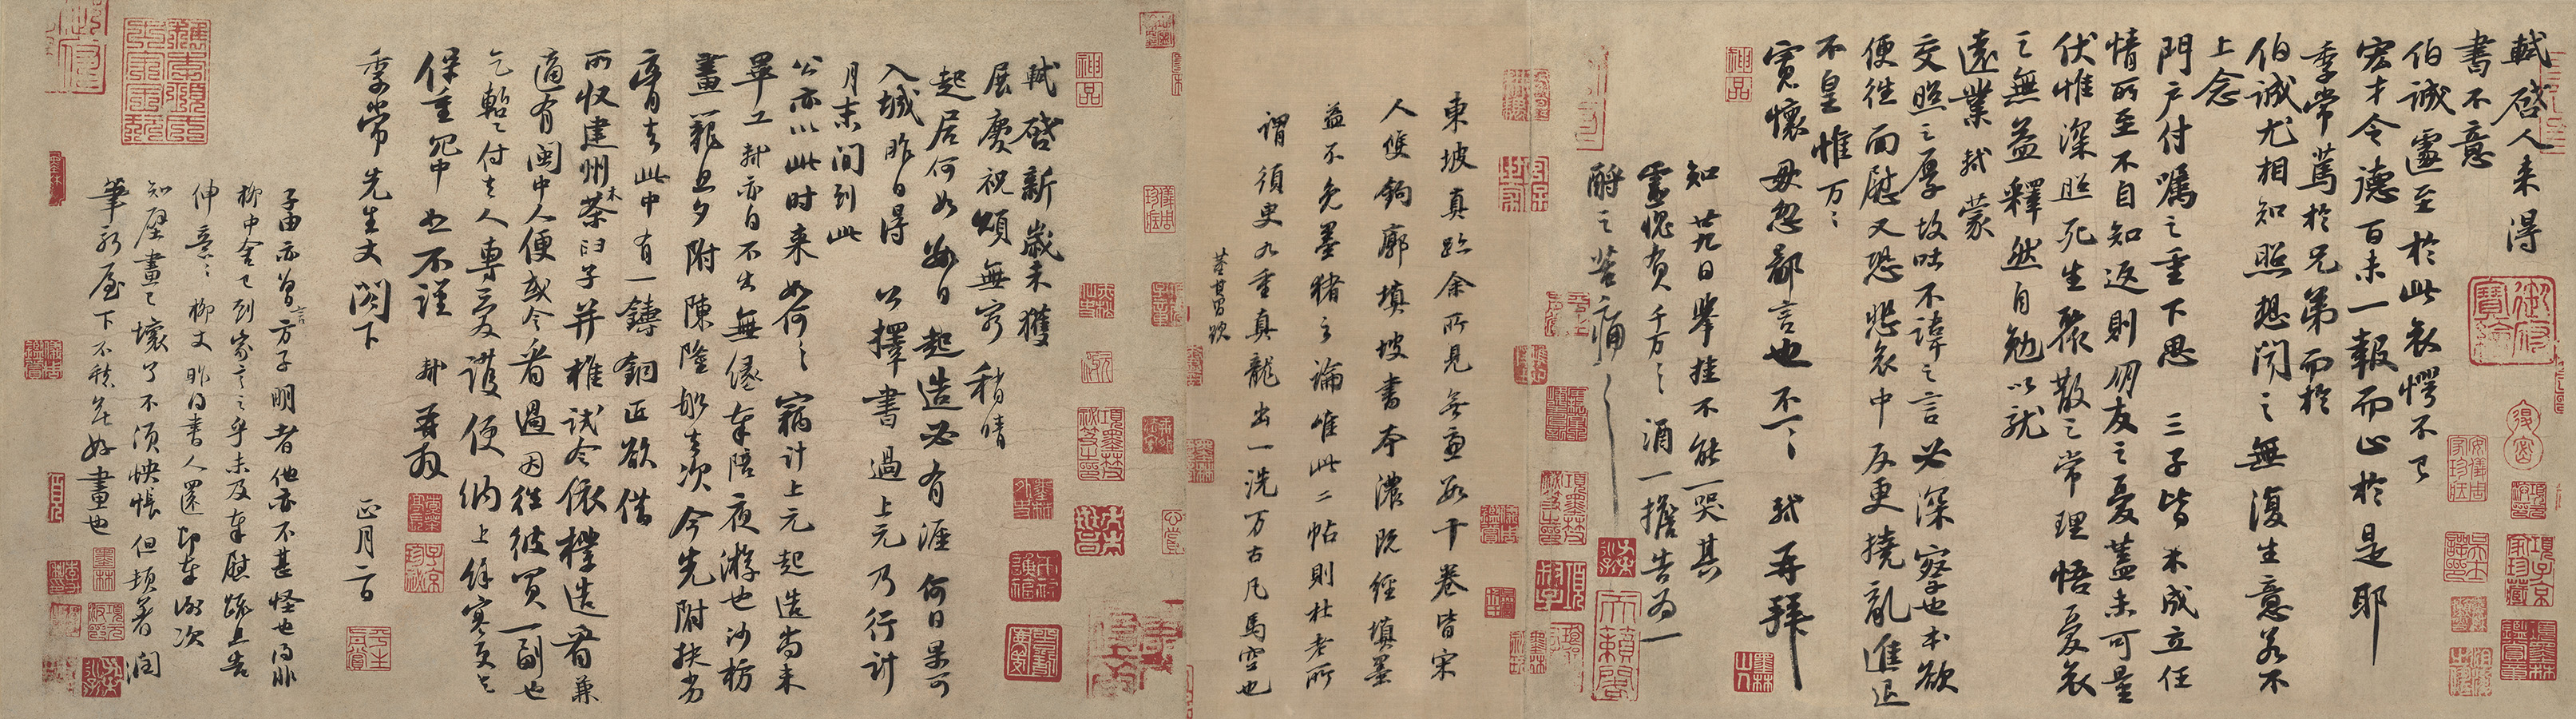 軾啓人来得
書不意
伯誠遽至於此哀愕不已
宏才令德百未一報而止於是耶
季常篤於兄弟而於
伯誠尤相知照想聞之無復生意若不
上念
門户付嘱之重下思三子皆未成立任
情所至不自知返則朋友之憂蓋未可量
伏惟深照死生聚散之常理悟憂哀
之無益釋然自勉以就
遠業軾蒙
交照之厚故吐不諱之言必深察也本欲
便往面慰又恐悲哀中反更撓亂進退
不皇惟万万
寬懷毋忽鄙言也不一一軾再拜
知廿九日舉挂不能一哭其
靈愧負千万千万酒一擔告為一
酹之苦痛苦痛
東坡真跡余所見無慮數十卷皆宋
人雙鉤廓填坡書本濃既經填墨
益不免墨猪之論唯此二帖則杜老所
謂須臾九重真龍出一洗万古凡馬空也
董其昌題
軾啓新歲未獲
展慶祝頌無窮稍晴
起居何如數日起造必有涯何日果可
入城昨日得公擇書過上元乃行計
月末間到此
公亦以此时来如何如何竊計上元起造尚未
畢工軾亦自不出無緣奉陪夜游也沙枋
畫籠旦夕附陳隆船去次今先附扶劣
膏去此中有一鑄銅匠欲借
所收建州木茶臼子并椎試令依樣造看兼
適有閩中人便或令看過因往彼買一副也
乞暫付去人專愛護便納上餘寒更乞
保重冗中恕不謹軾再拜
季常先生丈閣下正月二日
子由亦曾言方子明者他亦不甚怪也得非
柳中舍已到家言之乎未及奉慰疏且告
伸意伸意柳丈昨得書人還即奉謝次
知壁畫已壞了不須怏悵但頓著潤
筆新屋下不愁無好畫也